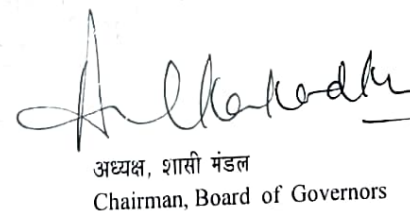 अध्यक्ष, शासी मंडल
Chairman, Board of Governors